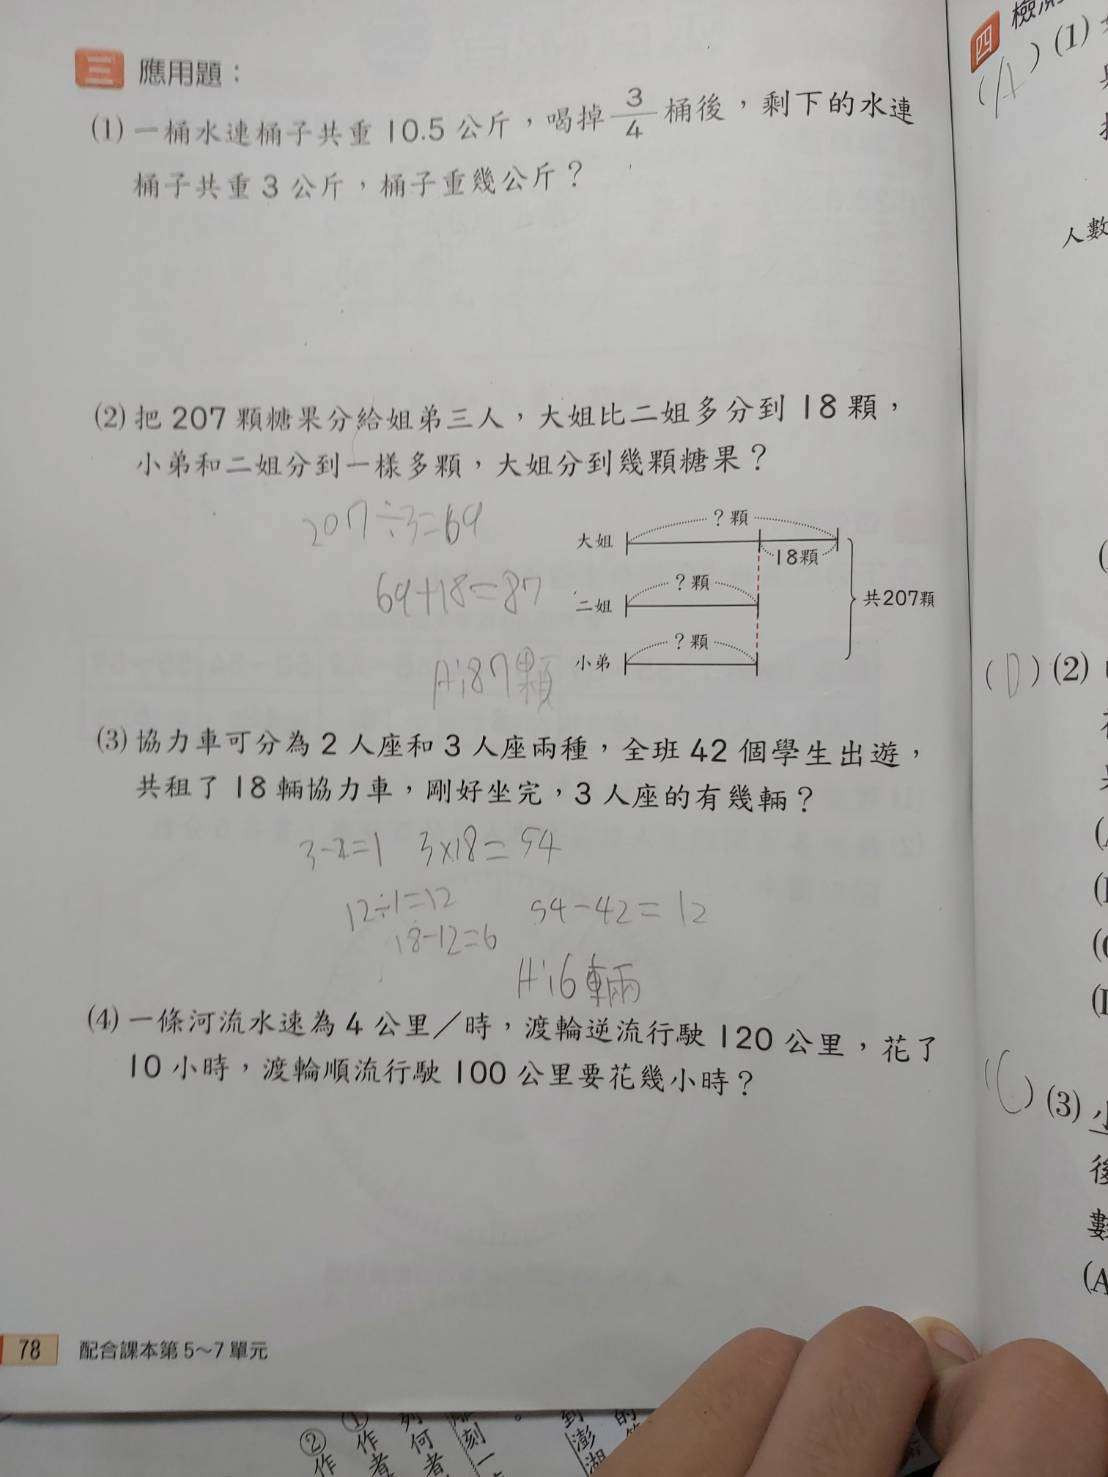 三 應用題：
(1) 一桶水連桶子共重 10.5 公斤，喝掉 3/4 桶後，剩下的水連
桶子共重 3 公斤，桶子重幾公斤？
(2) 把 207 顆糖果分給姐弟三人，大姐比二姐多分到 18 顆，
小弟和二姐分到一樣多顆，大姐分到幾顆糖果？
207÷3=69
69+18=87
A:87顆
? 顆
大姐
18顆
? 顆
二姐
共207顆
? 顆
小弟
(3) 協力車可分為 2 人座和 3 人座兩種，全班 42 個學生出遊，
共租了 18 輛協力車，剛好坐完，3 人座的有幾輛？
3-2=1 3×18=54
12÷1=12 54-42=12
18-12=6
A:6輛
(4) 一條河流水速為 4 公里／時，渡輪逆流行駛 120 公里，花了
10 小時，渡輪順流行駛 100 公里要花幾小時？
78 配合課本第 5～7 單元
四
(A) (1)
人數
(D) (2)
(C) (3)
後
數
(A
①作者
②作
何者
刻一
到澎湖
的